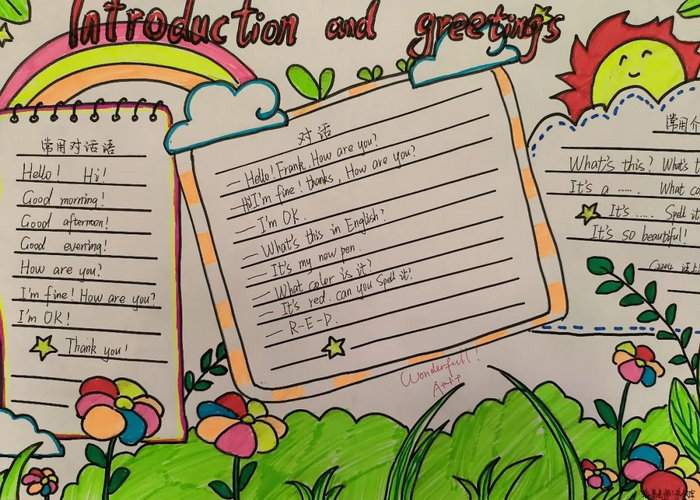 Introduction and greetings
常用对话语
Hello! Hi!
Good morning!
Good afternoon!
Good evening!
How are you?
I'm fine! How are you?
I'm OK!
Thank you!
对话
— Hello! Frank. How are you?
I'm fine! thanks, How are you?
— I'm OK.
— What's this in English?
— It's my new pen.
— What color is it?
— It's red. can you Spell it?
— R-E-D.
Wonderfull!
A++
常用介
What's this? What's t
It's a ...... What co
It's ...... Spell it
It's so beautiful!